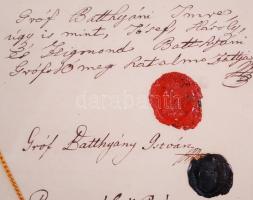 Gróf Batthyáni Imre
úgy is mint, Jósef, Károly,
És Zsigmond Batthyáni
Grófok meg hatalma
Gróf Batthyány István